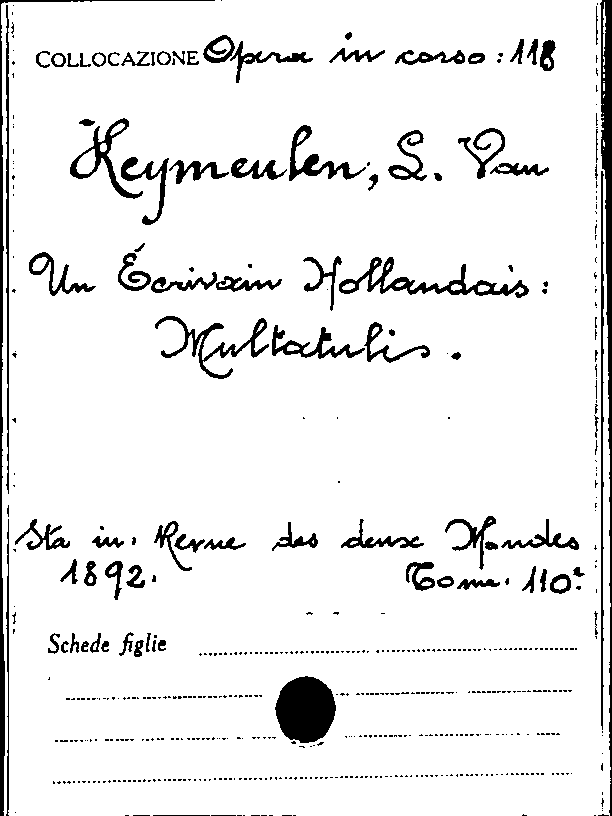 COLLOCAZIONE Opera in corso: 118
Keymeulen, L. Van
Un Écrivain Hollandais:
Multatulis.
Sta in. Revue des deux Mondes
1892. Tome. 110°
Schede figlie